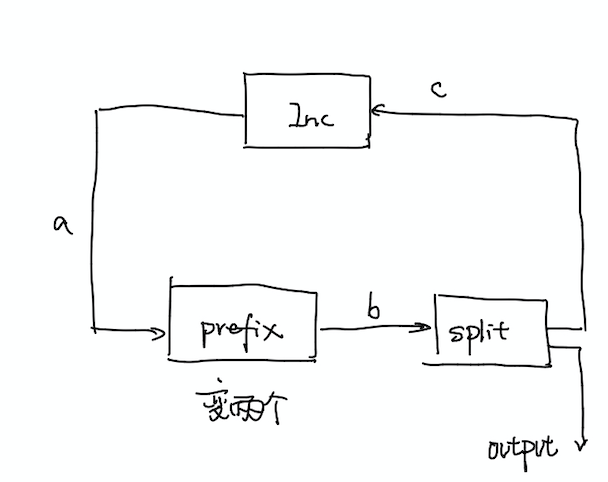 c
Inc
a
b
prefix
split
变两个
output